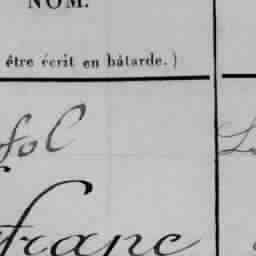 NOM.
être écrit en bâtarde.)
fol
franc